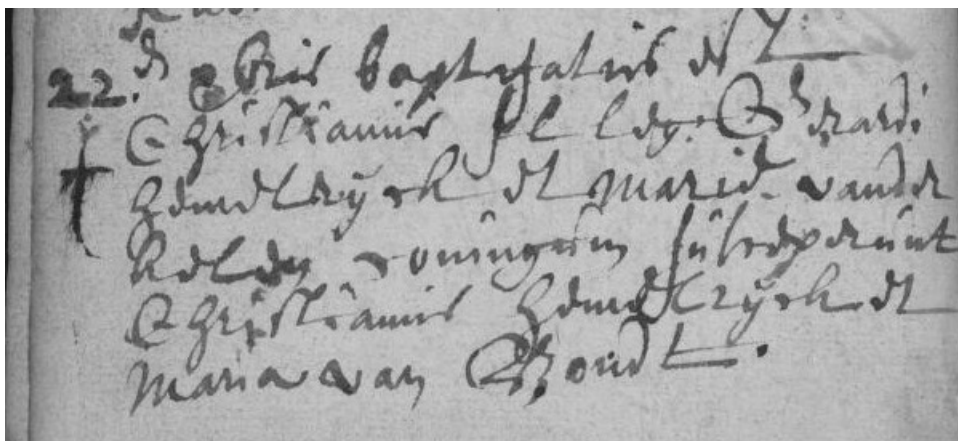 22. 8bris baptizatus est
Christianus fil leg: Gherardi
Hemelryck et Marie vander
Kelen coniugum susceperunt
Christianus Hemelryck et
Maria van